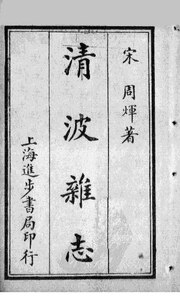 宋 周煇著
清波雜志
上海進步書局印行